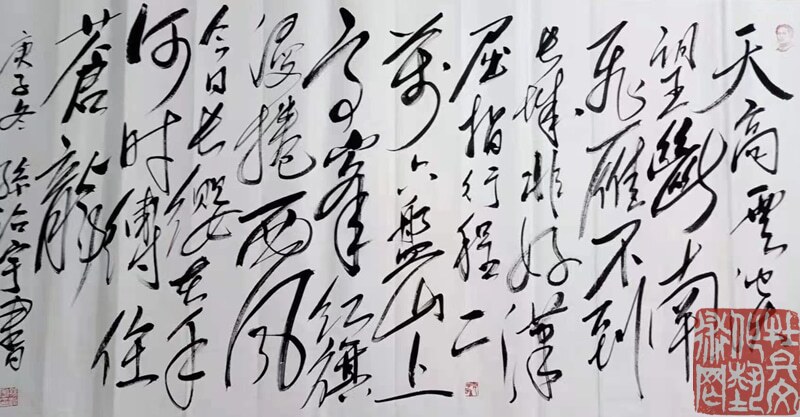 天高雲淡
望斷南
飛雁不到
长城非好漢
屈指行程二
萬六盤山上
高峯红旗
漫捲西风
今日长缨在手
何时縛住
蒼龍
庚子冬 孫治宇書